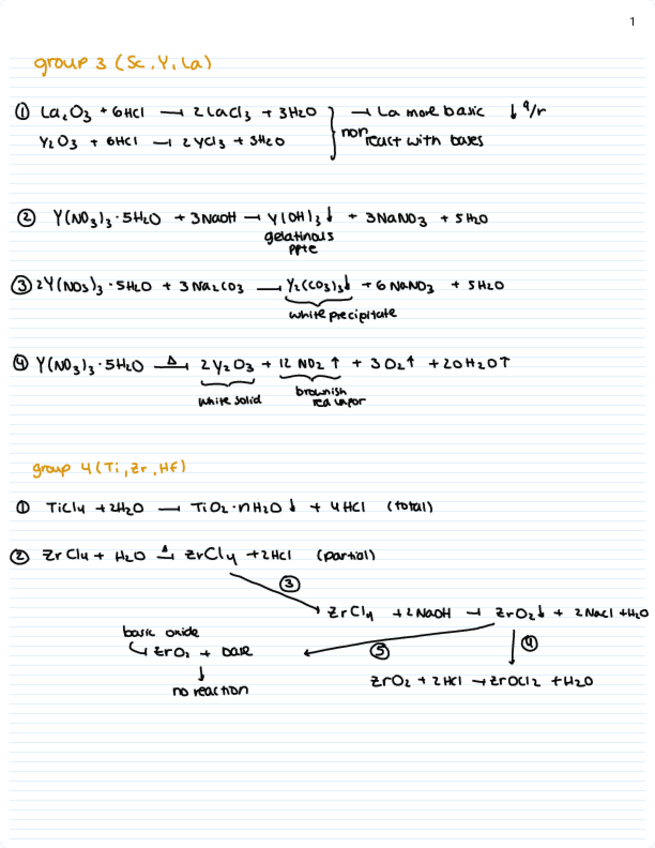 1
group 3 (Sc, Y, La)
① La₂O₃ + 6HCl → 2LaCl₃ + 3H₂O → La more basic ↓ q/r
Y₂O₃ + 6HCl → 2YCl₃ + 3H₂O non react with bases
② Y(NO₃)₃·5H₂O + 3NaOH → Y(OH)₃↓ + 3NaNO₃ + 5H₂O
gelatinous
ppte
③ 2Y(NO₃)₃·5H₂O + 3Na₂CO₃ → Y₂(CO₃)₃↓ + 6NaNO₃ + 5H₂O
white precipitate
④ Y(NO₃)₃·5H₂O Δ→ 2Y₂O₃ + 12NO₂↑ + 3O₂↑ + 20H₂O↑
white solid brownish
red vapor
group 4 (Ti, Zr, Hf)
① TiCl₄ + 2H₂O → TiO₂·nH₂O↓ + 4HCl (total)
② ZrCl₄ + H₂O Δ→ ZrCl₄ + 2HCl (partial)
③
ZrCl₄ + 2NaOH → ZrO₂↓ + 2NaCl + H₂O
basic oxide
↳ ZrO₂ + base ⑤ ④
↓
no reaction ZrO₂ + 2HCl → ZrOCl₂ + H₂O